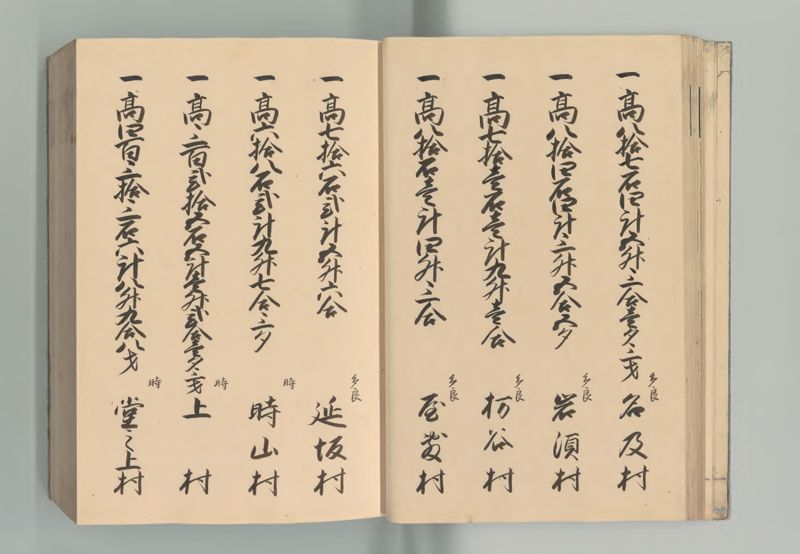 一 高八拾七石四斗五升三合壱夕三才 多良 名及村
一 高八拾四石四斗三升五合五夕 多良 岩須村
一 高七拾壱石壱斗九升壱合 多良 杤谷村
一 高八拾石壱斗四升三合 多良 村
一 高七拾六石弐斗五升六合 多良 延坂村
一 高六拾八石弐斗九升七合三夕 時 時山村
一 高三百弐拾五石六斗壱升弐合壱夕三才 時 上村
一 高四百三拾三石六斗八升九合八才 時 堂之上村